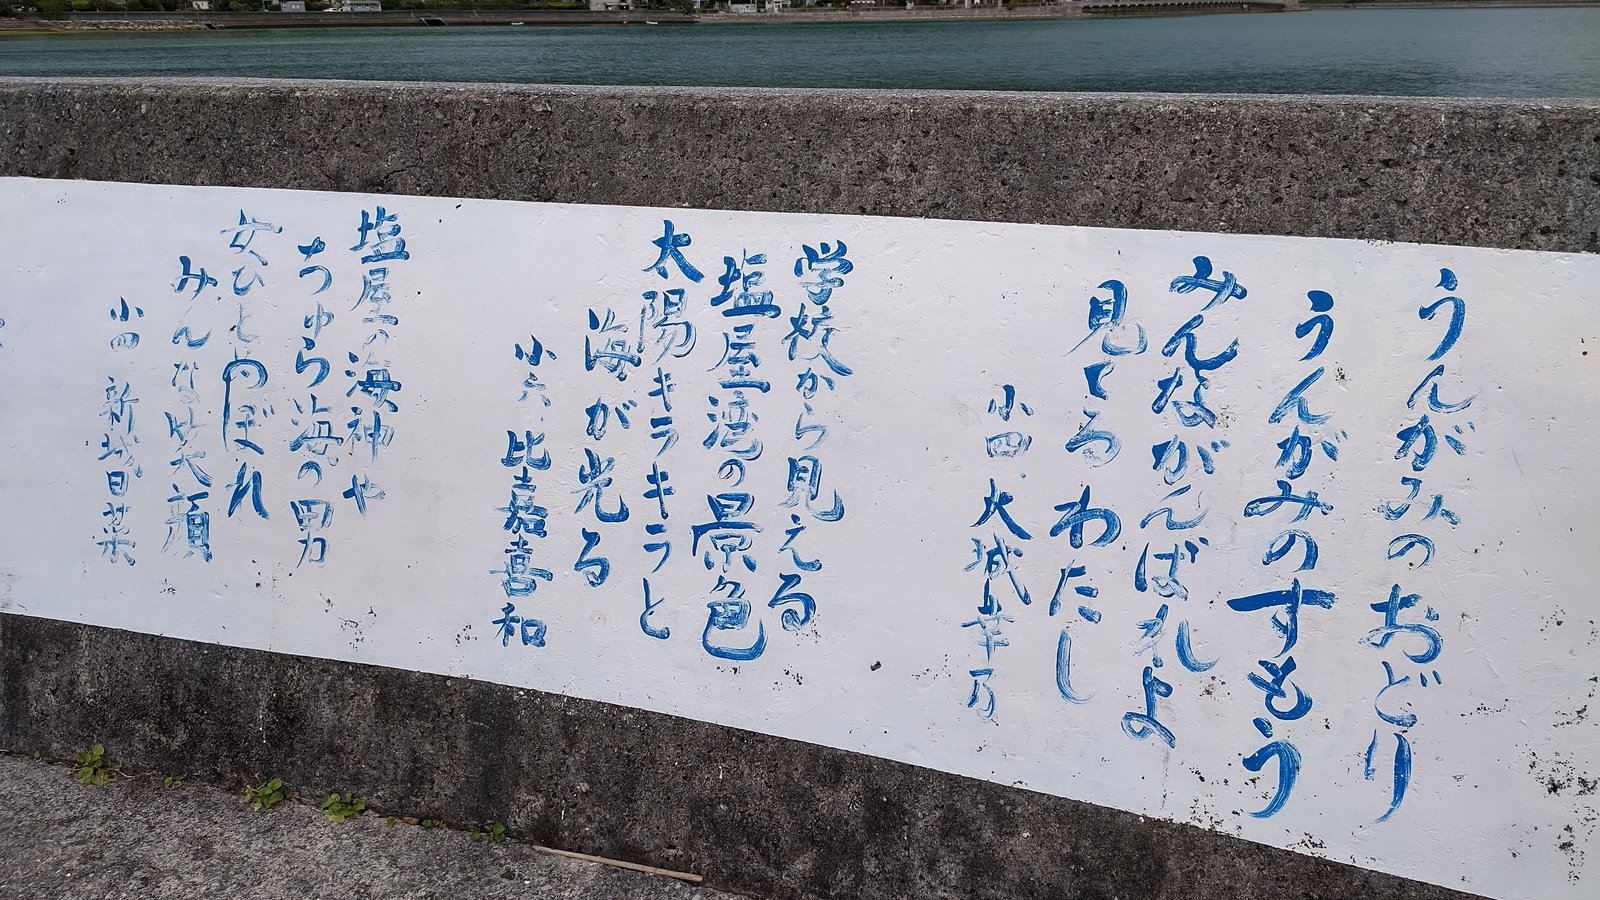 うんがみのおどり
うんがみのすもう
みんながんばれよ
見てる わたし
小四、大城華乃
学校から見える
塩屋湾の景色
太陽キラキラと
海が光る
小六、比嘉喜和
塩屋の海神や
ちゅら海の男
女ひとめぼれ
みんな笑顔
小四 新城日菜